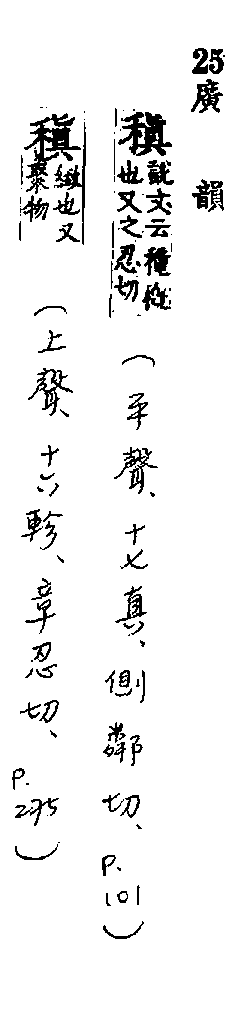 25廣韻
稹說文云穜穊也又之忍切(平聲、十七真、側鄰切、P.101)
稹緻也又聚物(上聲、十六軫、章忍切、P.275)